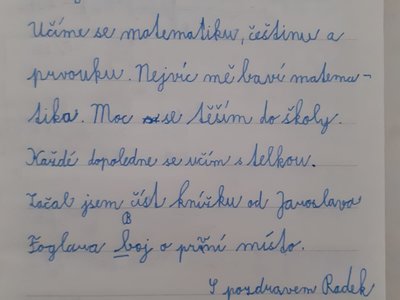 Učíme se matematiku, češtinu a
prvouku. Nejvíc mě baví matema-
tika. Moc se těším do školy.
Každé dopoledne se učím s telkou.
Začal jsem číst knížku od Jaroslava
Foglara Boj o první místo.
S pozdravem Radek